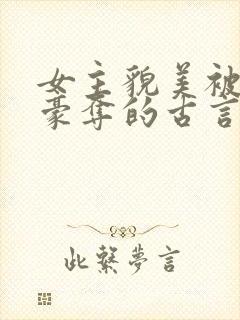 女主貌美被
豪夺的古言
此繫夢言